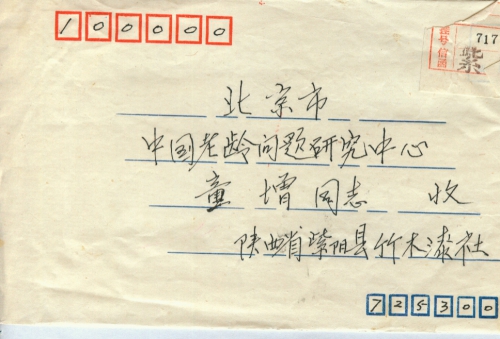 100000
挂号信函
717
紫
北京市
中国老龄问题研究中心
童增同志 收
陕西省紫阳县竹木漆社
725300